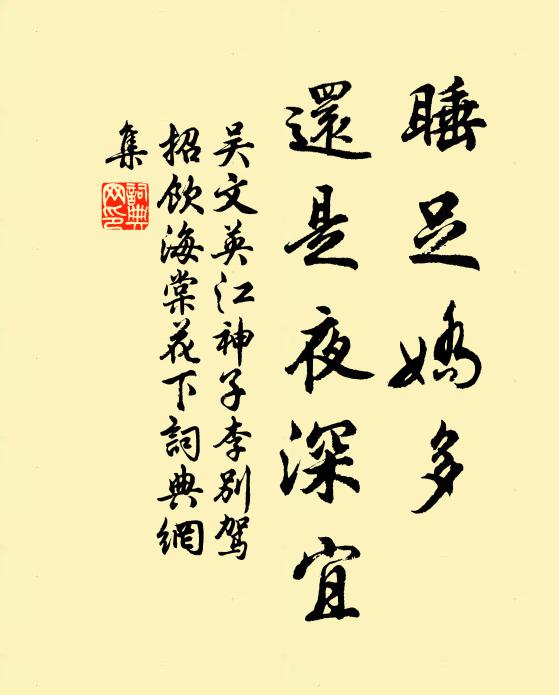 睡足嬌多
還是夜深宜
吴文英江神子李別駕
招飲海棠花下詞典網
集
詞典
网印